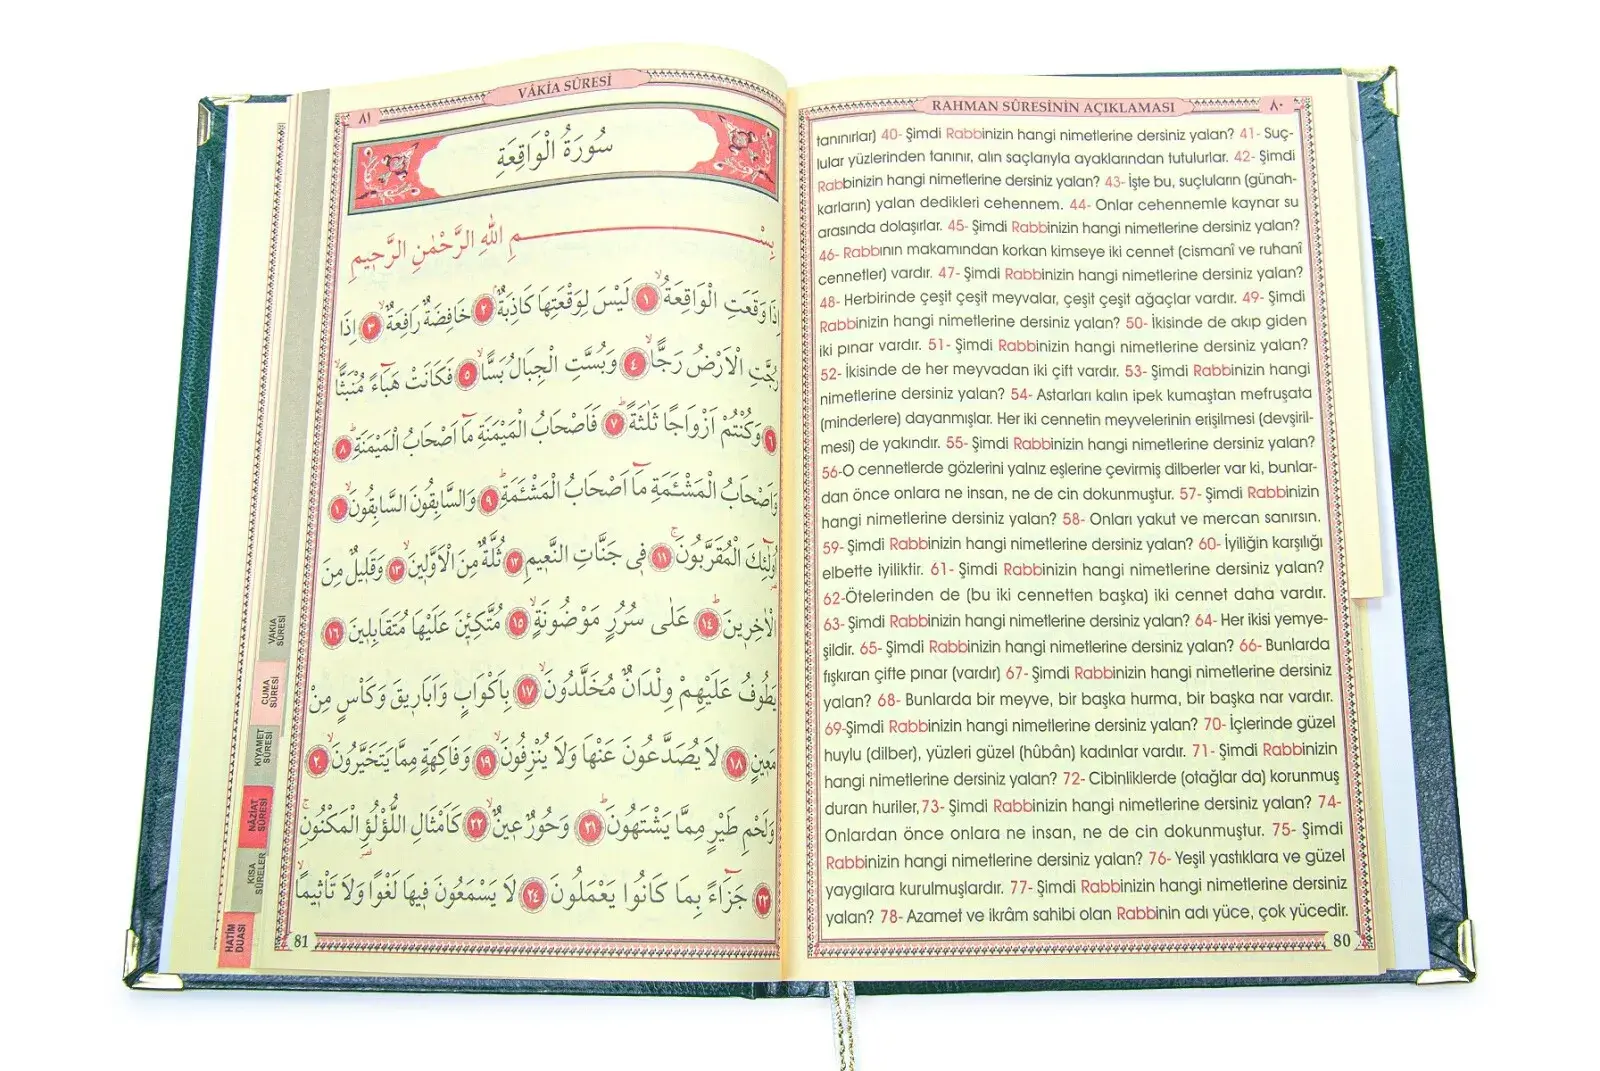 RAHMAN SÛRESİNİN AÇIKLAMASI
٨٠
tanınırlar) 40- Şimdi Rabbinizin hangi nimetlerine dersiniz yalan? 41- Suç-
lular yüzlerinden tanınır, alın saçlarıyla ayaklarından tutulurlar. 42- Şimdi
Rabbinizin hangi nimetlerine dersiniz yalan? 43- İşte bu, suçluların (günah-
karların) yalan dedikleri cehennem. 44- Onlar cehennemle kaynar su
arasında dolaşırlar. 45- Şimdi Rabbinizin hangi nimetlerine dersiniz yalan?
46- Rabbının makamından korkan kimseye iki cennet (cismanî ve ruhanî
cennetler) vardır. 47- Şimdi Rabbinizin hangi nimetlerine dersiniz yalan?
48- Herbirinde çeşit çeşit meyvalar, çeşit çeşit ağaçlar vardır. 49- Şimdi
Rabbinizin hangi nimetlerine dersiniz yalan? 50- İkisinde de akıp giden
iki pınar vardır. 51- Şimdi Rabbinizin hangi nimetlerine dersiniz yalan?
52- İkisinde de her meyvadan iki çift vardır. 53- Şimdi Rabbinizin hangi
nimetlerine dersiniz yalan? 54- Astarları kalın ipek kumaştan mefruşata
(minderlere) dayanmışlar. Her iki cennetin meyvelerinin erişilmesi (devşiril-
mesi) de yakındır. 55- Şimdi Rabbinizin hangi nimetlerine dersiniz yalan?
56-O cennetlerde gözlerini yalnız eşlerine çevirmiş dilberler var ki, bunlar-
dan önce onlara ne insan, ne de cin dokunmuştur. 57- Şimdi Rabbinizin
hangi nimetlerine dersiniz yalan? 58- Onları yakut ve mercan sanırsın.
59- Şimdi Rabbinizin hangi nimetlerine dersiniz yalan? 60- İyiliğin karşılığı
elbette iyiliktir. 61- Şimdi Rabbinizin hangi nimetlerine dersiniz yalan?
62-Ötelerinden de (bu iki cennetten başka) iki cennet daha vardır.
63- Şimdi Rabbinizin hangi nimetlerine dersiniz yalan? 64- Her ikisi yemye-
şildir. 65- Şimdi Rabbinizin hangi nimetlerine dersiniz yalan? 66- Bunlarda
fışkıran çifte pınar (vardır) 67- Şimdi Rabbinizin hangi nimetlerine dersiniz
yalan? 68- Bunlarda bir meyve, bir başka hurma, bir başka nar vardır.
69-Şimdi Rabbinizin hangi nimetlerine dersiniz yalan? 70- İçlerinde güzel
huylu (dilber), yüzleri güzel (hûbân) kadınlar vardır. 71- Şimdi Rabbinizin
hangi nimetlerine dersiniz yalan? 72- Cibinliklerde (otağlar da) korunmuş
duran huriler,73- Şimdi Rabbinizin hangi nimetlerine dersiniz yalan? 74-
Onlardan önce onlara ne insan, ne de cin dokunmuştur. 75- Şimdi
Rabbinizin hangi nimetlerine dersiniz yalan? 76- Yeşil yastıklara ve güzel
yaygılara kurulmuşlardır. 77- Şimdi Rabbinizin hangi nimetlerine dersiniz
yalan? 78- Azamet ve ikrâm sahibi olan Rabbinin adı yüce, çok yücedir.
80
VÂKİA SÛRESİ
٨١
سُورَةُ الْوَاقِعَةِ
بِسْمِ اللهِ الرَّحْمٰنِ الرَّحِيمِ
اِذَا وَقَعَتِ الْوَاقِعَةُۙ ١ لَيْسَ لِوَقْعَتِهَا كَاذِبَةٌۢ ٢ خَافِضَةٌ رَافِعَةٌۙ ٣ اِذَا
رُجَّتِ الْاَرْضُ رَجًّاۙ ٤ وَبُسَّتِ الْجِبَالُ بَسًّاۙ ٥ فَكَانَتْ هَبَٓاءً مُنْبَثًّاۙ
٦ وَكُنْتُمْ اَزْوَاجًا ثَلٰثَةًۜ ٧ فَاَصْحَابُ الْمَيْمَنَةِ مَٓا اَصْحَابُ الْمَيْمَنَةِۜ ٨
وَاَصْحَابُ الْمَشْـَٔمَةِ مَٓا اَصْحَابُ الْمَشْـَٔمَةِۜ ٩ وَالسَّابِقُونَ السَّابِقُونَۙ ١٠
اُولٰٓئِكَ الْمُقَرَّبُونَۚ ١١ فِي جَنَّاتِ النَّعِيمِ ١٢ ثُلَّةٌ مِنَ الْاَوَّلِينَۙ ١٣ وَقَلِيلٌ مِنَ
الْاٰخِرِينَۜ ١٤ عَلٰى سُرُرٍ مَوْضُونَةٍۙ ١٥ مُتَّكِـِٔينَ عَلَيْهَا مُتَقَابِلِينَ ١٦
يَطُوفُ عَلَيْهِمْ وِلْدَانٌ مُخَلَّدُونَۙ ١٧ بِاَكْوَابٍ وَاَبَارِيقَ وَكَأْسٍ مِنْ
مَعِينٍۙ ١٨ لَا يُصَدَّعُونَ عَنْهَا وَلَا يُنْزِفُونَۙ ١٩ وَفَاكِهَةٍ مِمَّا يَتَخَيَّرُونَۙ ٢٠
وَلَحْمِ طَيْرٍ مِمَّا يَشْتَهُونَۜ ٢١ وَحُورٌ عِينٌۙ ٢٢ كَاَمْثَالِ اللُّؤْلُؤِ الْمَكْنُونِۚ
٢٣ جَزَٓاءً بِمَا كَانُوا يَعْمَلُونَ ٢٤ لَا يَسْمَعُونَ فِيهَا لَغْوًا وَلَا تَأْثِيمًاۙ
81
VÂKIA
SÛRESİ
CUMA
SÛRESİ
KIYAMET
SÛRESİ
NÂZİAT
SÛRESİ
KISA
SÛRELER
HATİM
DUASI